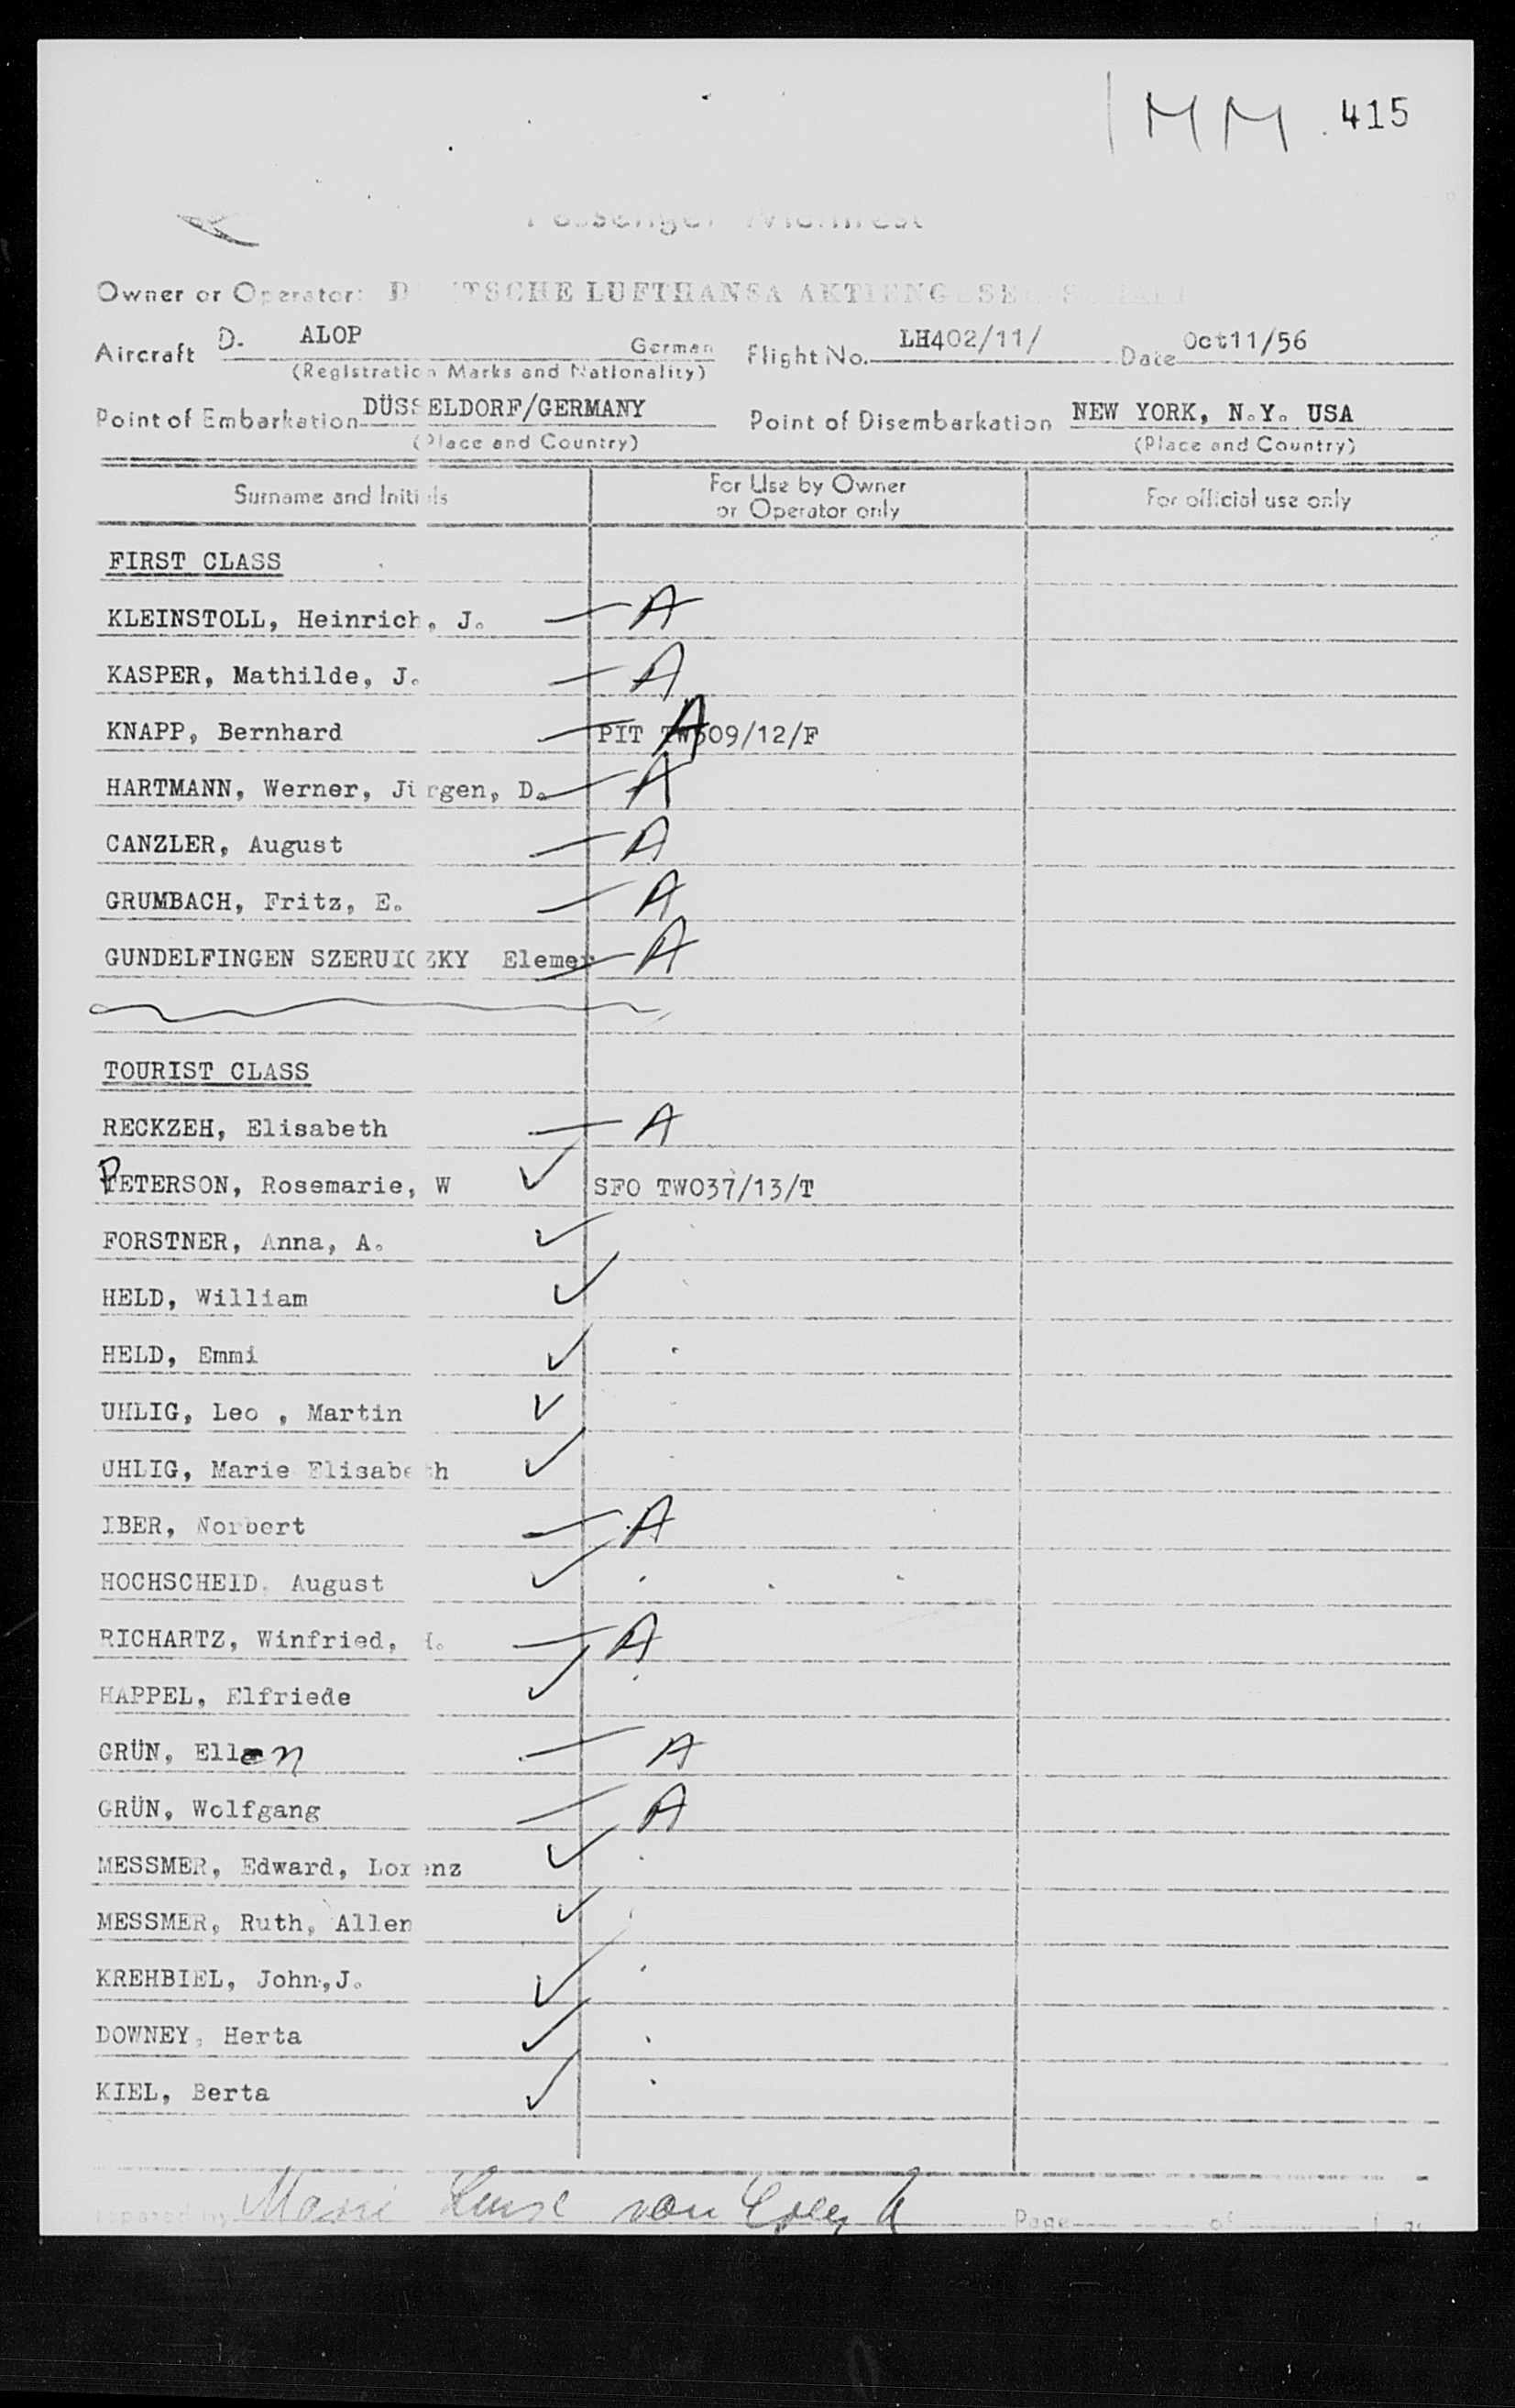 MM 415
Passenger Manifest
Owner or Operator: DEUTSCHE LUFTHANSA AKTIENGESELLSCHAFT
Aircraft D. ALOP German Flight No. LH402/11/ Date Oct11/56
(Registration Marks and Nationality)
Point of Embarkation DÜSSELDORF/GERMANY Point of Disembarkation NEW YORK, N.Y. USA
(Place and Country) (Place and Country)
Surname and Initials For Use by Owner or Operator only For official use only
FIRST CLASS
KLEINSTOLL, Heinrich, J. — A
KASPER, Mathilde, J. — A
KNAPP, Bernhard — A PIT TW509/12/F
HARTMANN, Werner, Jürgen, D. — A
CANZLER, August — A
GRUMBACH, Fritz, E. — A
GUNDELFINGEN Elemer — A
TOURIST CLASS
RECKZEH, Elisabeth — A
PETERSON, Rosemarie, W ✓ SFO TW037/13/T
FORSTNER, Anna, A. ✓
HELD, William ✓
HELD, Emmi ✓
UHLIG, Leo , Martin ✓
UHLIG, Marie Elisabeth ✓
IBER, Norbert — A
HOCHSCHEID, August ✓
RICHARTZ, Winfried, — A
HAPPEL, Elfriede ✓
GRÜN, Ellen — A
GRÜN, Wolfgang — A
MESSMER, Edward, Lorenz ✓
MESSMER, Ruth, Allen ✓
KREHBIEL, John,J. ✓
DOWNEY, Herta ✓
KIEL, Berta ✓
Prepared by von Page of